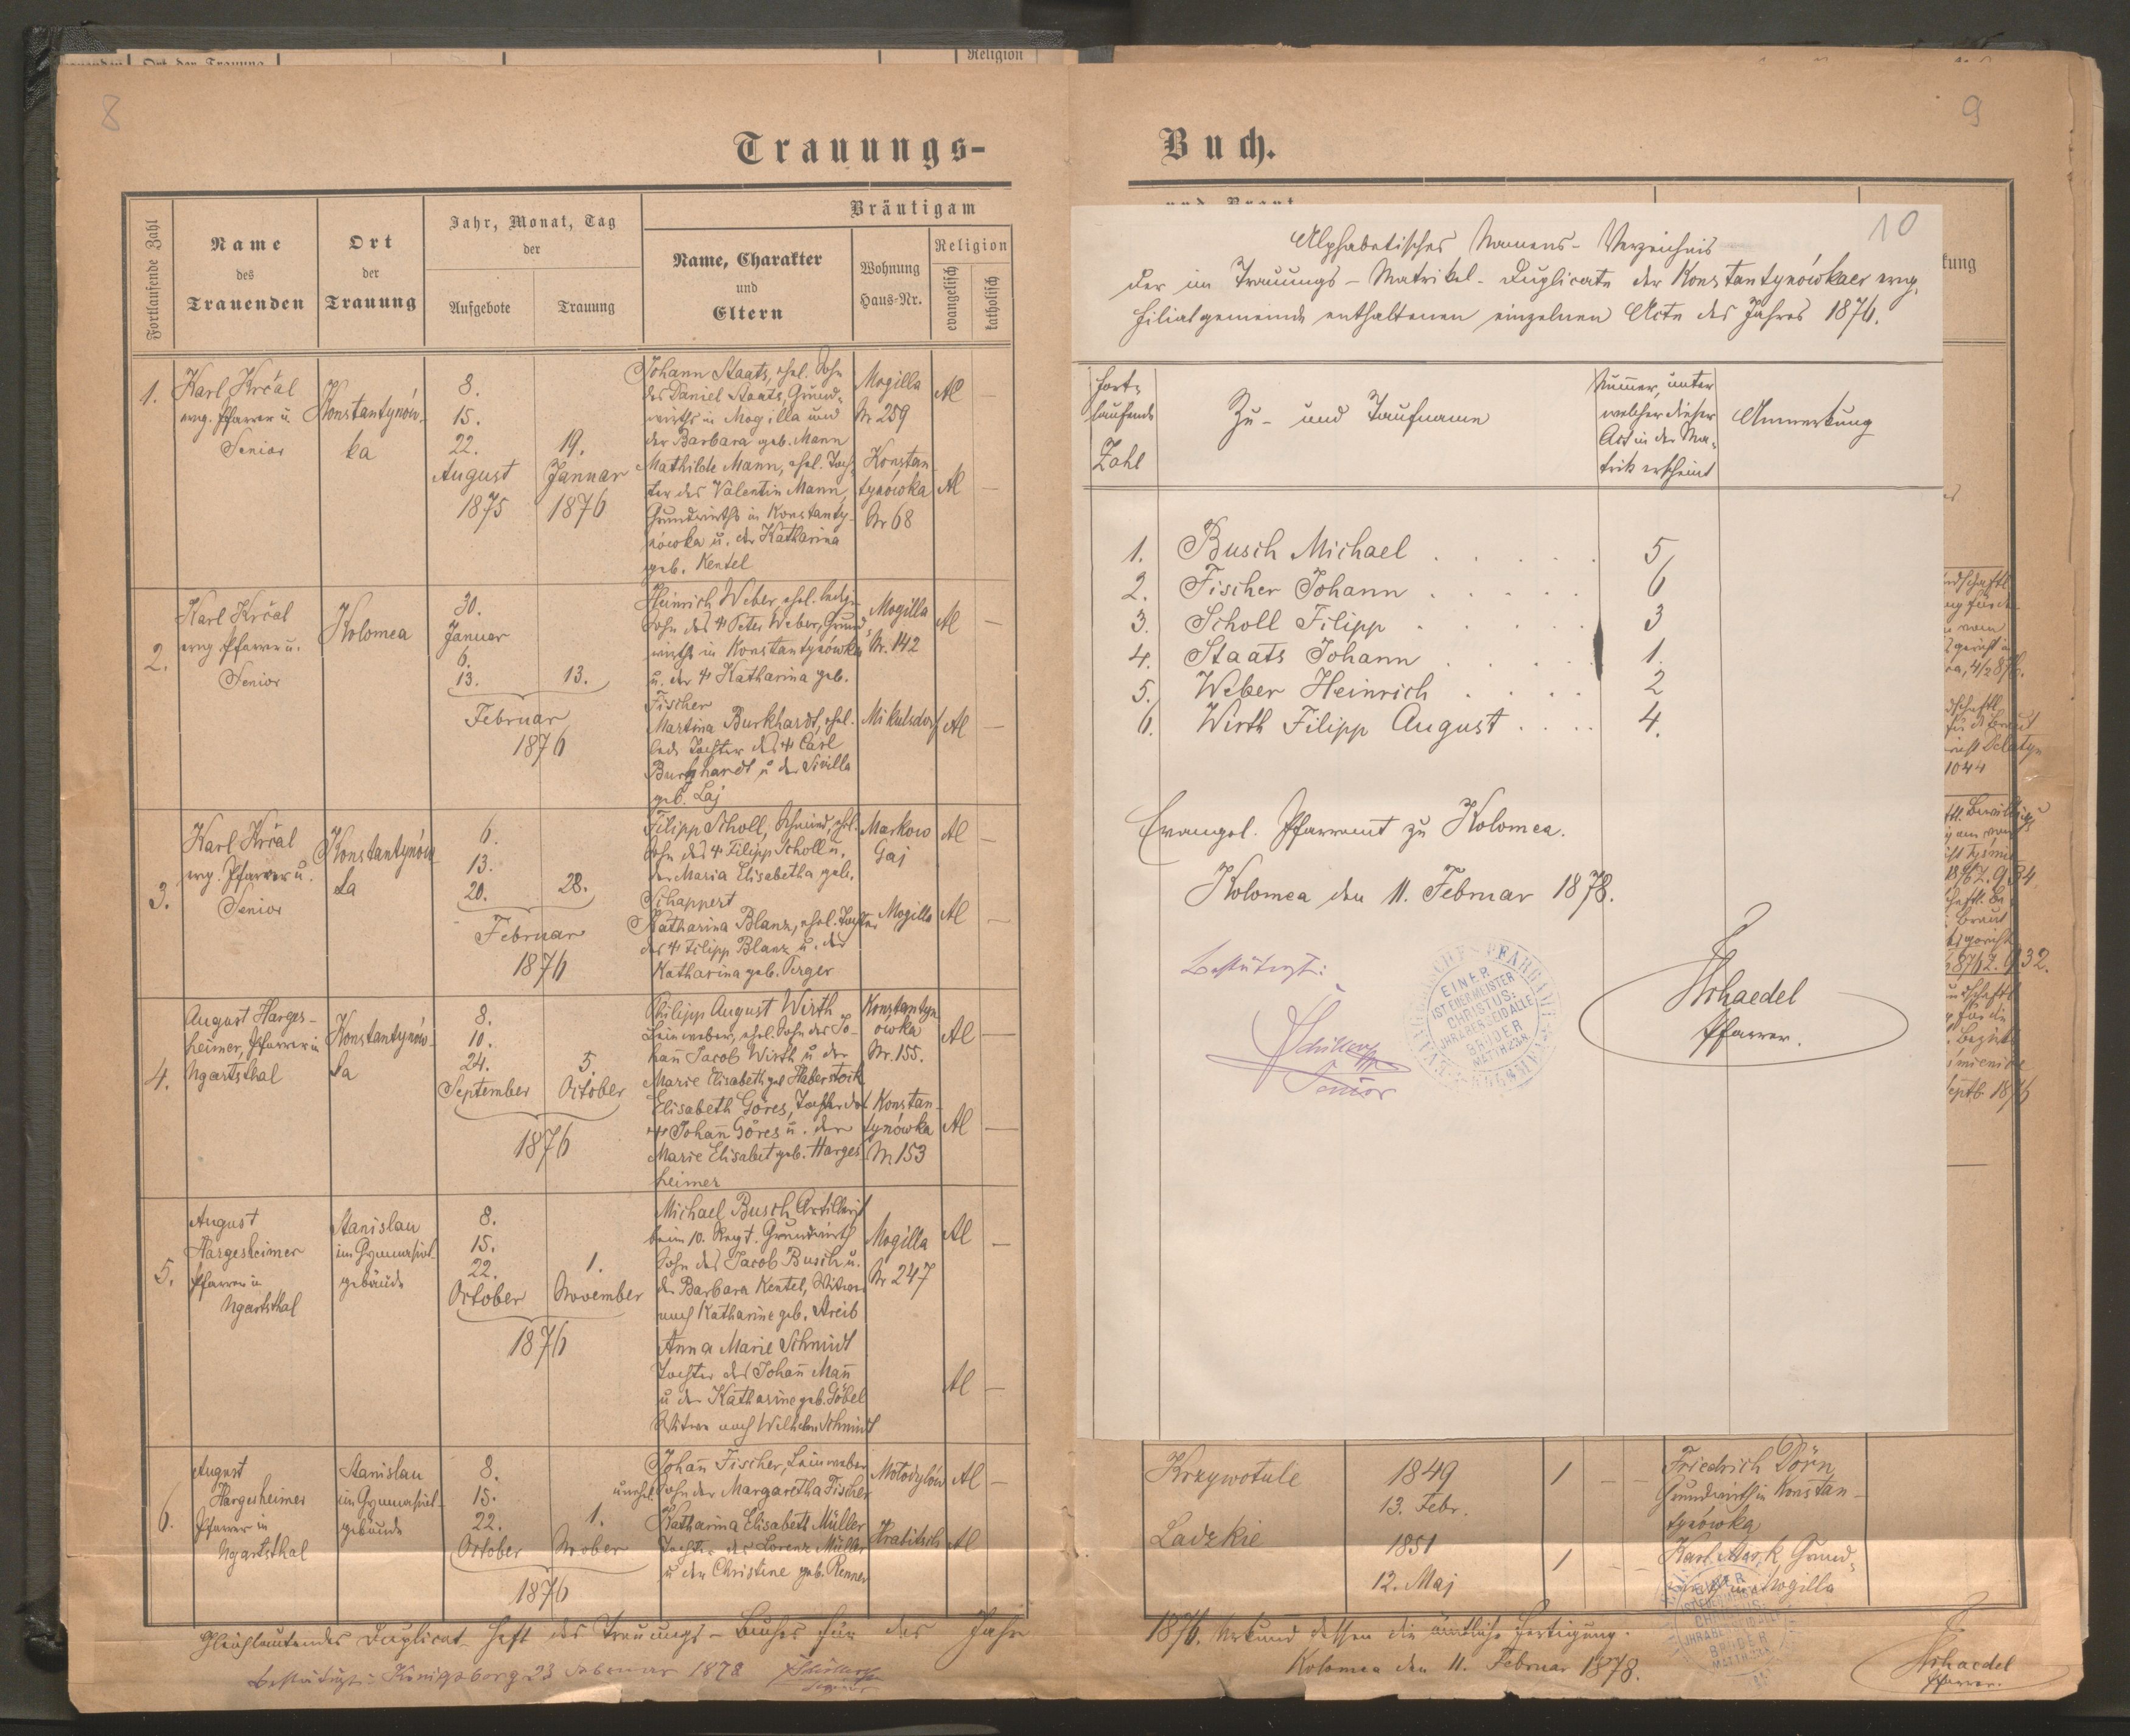 8
Trauungs-
Fortlaufende Zahl
Name
des
Trauenden
Ort
der
Trauung
Jahr, Monat, Tag
der
Aufgebote
Trauung
Bräutigam
Name, Charakter
und
Eltern
Wohnung
Haus-Nr.
Religion
evangelisch
katholisch
1.
Karl Krčal
evng. Pfarrer u.
Senior
Konstantynów-
ka
8.
15.
22.
August
1875
19.
Januar
1876
Johann Staats, ehel. Sohn
des Daniel Staats, Grund-
wirths in Mogilla und
der Barbara geb. Mann
Mogilla
Nr 259
Al —
Mathilde Mann, ehel. Toch-
ter des Valentin Mann,
Grundwirths in Konstanty-
nówka u. der Katharina
geb. Kentel
Konstan-
tynówka
Nr 68
Al —
2.
Karl Krčal
evng Pfarrer u.
Senior
Kolomea
30.
Januar
6.
13.
Februar
1876
13.
Heinrich Weber, ehel. ledg.
Sohn des Peter Weber, Grund-
wirths in Konstantynówka
u. der Katharina geb.
Fischer
Mogilla
Nr. 142
Al —
Martina Burkhardt, ehel.
led. Tochter des Carl
Burghardt u der Sivilla
geb. Laj
Mikulsdorf
Al —
3.
Karl Krčal
evg. Pfarrer u.
Senior
Konstantynów
ka
6.
13.
20.
Februar
1876
28.
Filipp Scholl, Schmied, ehel.
Sohn des Filipp Scholl u.
der Maria Elisabetha geb.
Schappert
Markow
Gaj
Al —
Katharina Blanz, ehel. Tochter
des Filipp Blanz u. der
Katharina geb. Perger
Mogilla
Al —
4.
August Harges-
heimer, Pfarrer in
Ugartsthal
Konstantynów-
ka
8.
10.
24.
September
5.
October
1876
Philipp August Wirth
Leinweber, ehel. Sohn des Jo-
hann Jacob Wirth u der
Marie Elisabeth geb Haberstock
Konstantyn
ówka
Nr. 155.
Al —
Elisabeth Göres, Tochter des
Johann Göres u. der
Marie Elisabet geb. Harges
heimer
Konstan-
tynówka
Nr 153
Al —
5.
August
Hargesheimer
Pfarrer in
Ugartsthal
Stanislau
im Gymnasial-
gebäude
8.
15.
22.
October
1.
November
1876
Michael Busch Artillerist
beim 10. Regt. Grundwirth
Sohn des Jacob Busch u.
der Barbara Kentel, Witwer
nach Katharine geb. Streib
Mogilla
Nr 247
Al —
Anna Marie Schmidt
Tochter des Johann Mann
u der Katharine geb. Göbel
Witwe nach Wilhelm Schmidt
Al —
6.
August
Hargesheimer
Pfarrer in
Ugartsthal
Stanislau
im Gymnasial-
gebäude
8.
15.
22.
October
1.
Nvober
1876
Johann Fischer, Leinweber
unehel. Sohn der Margaretha Fischer
Molodylów
Al —
Katharina Elisabeth Müller
Tochter des Lorenz Müller
u der Christine geb. Renner
Hratitsch
Al
Gleichlautendes Duplicat-Heft des Trauungs-Buches für das Jahr
bestätigt: Königsberg 23 Februar 1878
Senior
9
Buch.
10
Alphabetisches Namens-Verzeichnis
der im Trauungs-Matrikel-Duplicate der Konstantynówkaer evng.
Filialgemeinde enthaltenen einzelnen Acte des Jahres 1876.
Fort-
laufende
Zahl
Zu- und Taufname
Nummer, unter
welcher dieser
Act in der Ma-
trik erscheint
Anmerkung
1. Busch Michael . . . . . 5
2. Fischer Johann . . . . . 6
3. Scholl Filipp . . . . . 3
4. Staats Johann . . . . . 1.
5. Weber Heinrich . . . . 2
6. Wirth Filipp August . . . . 4.
Evangel. Pfarramt zu Kolomea.
Kolomea den 11. Februar 1878.
Bestätigt:
Senior
EINER
IST EUER MEISTER
CHRISTUS;
IHR ABER SEID ALLE
BRÜDER
MATTH. 23.8
Schaedel
Pfarrer.
Krzywotule
1849
13. Febr.
1 — —
Friedrich Dörn
Grundwirth in Konstan-
tynówka
Ladzkie
1851
12. Maj
1 — —
Karl Mark, Grund-
wirth in Mogilla
1876. Urkund dessen die ämtliche Fertigung.
Kolomea den 11. Februar 1878.
Schaedel
Pfarrer.